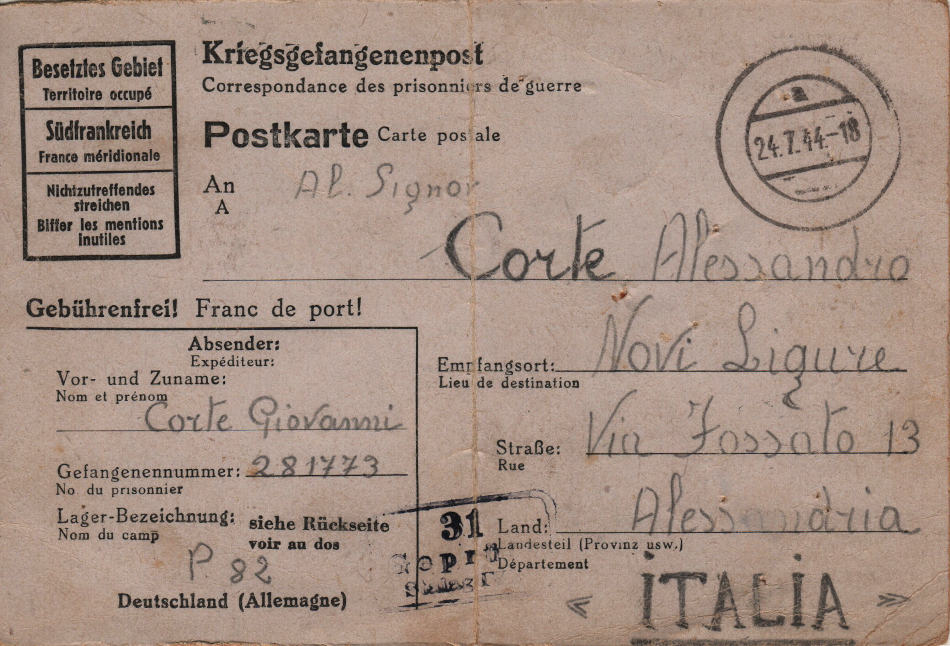 Besetztes Gebiet
Territoire occupé
Südfrankreich
France méridionale
Nichtzutreffendes
streichen
Biffer les mentions
inutiles
Kriegsgefangenenpost
Correspondance des prisonniers de guerre
Postkarte Carte postale
24.7.44.-18
An
A
Al. Signor
Corte Alessandro
Gebührenfrei! Franc de port!
Absender:
Expéditeur:
Vor- und Zuname:
Nom et prénom
Corte Giovanni
Gefangenennummer: 281773
No du prisonnier
Lager-Bezeichnung: siehe Rückseite
Nom du camp voir au dos
P 82
Deutschland (Allemagne)
31
Empfangsort: Novi Ligure
Lieu de destination
Straße: Via Fossato 13
Rue
Land: Alessandria
Landesteil (Provinz usw.)
Département
« ITALIA »